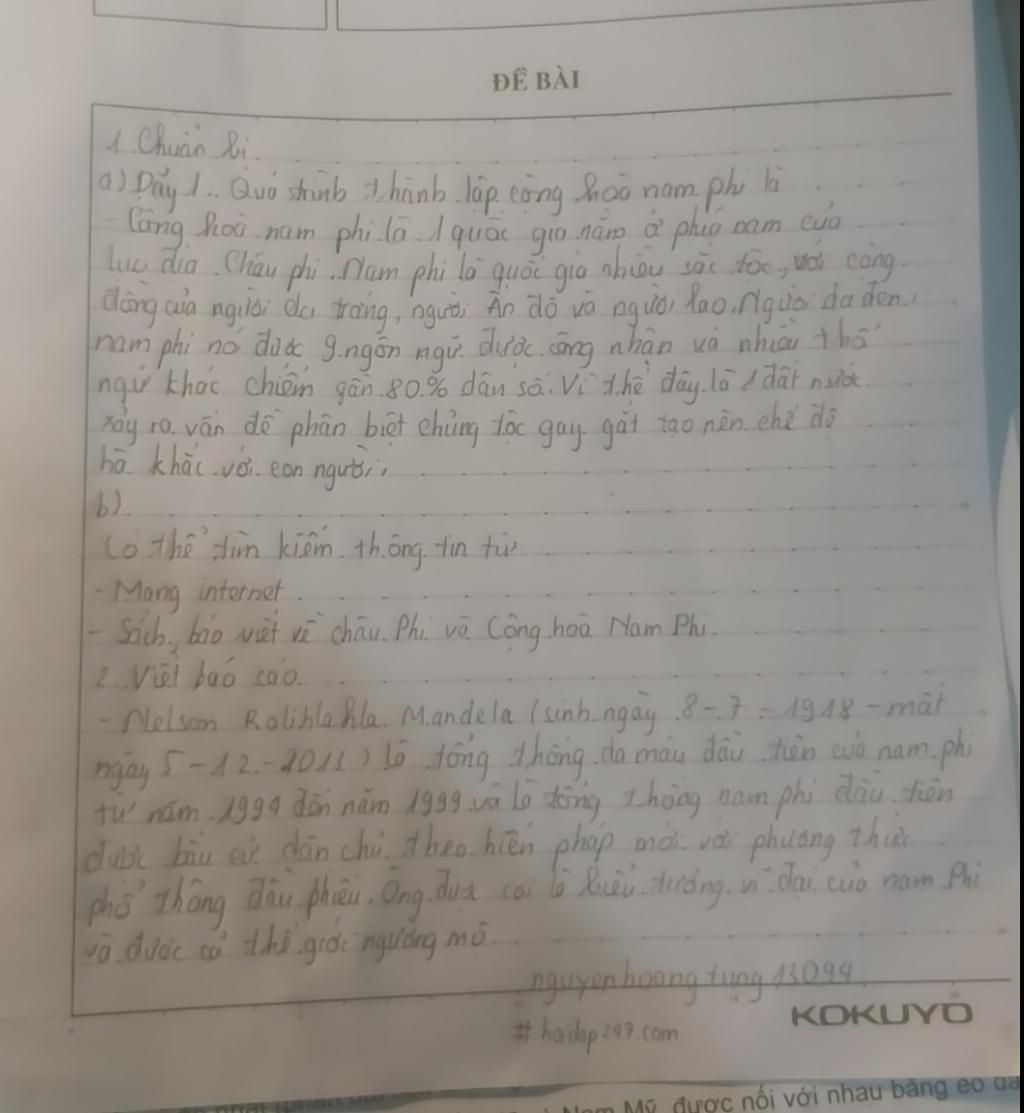 ĐỀ BÀI
1. Chuẩn bị.
a) Đẩy 1.. Quá trình thành lập cộng hoà nam phi là
- Cộng hoà nam phi là 1 quốc gia nằm ở phía nam của
lục địa Châu phi. Nam phi là quốc gia nhiều sắc tộc, với cộng
đồng của người da trắng, người Ấn độ và người lao. Người da đen
nam phi nói được 9 ngôn ngữ được công nhận và nhiều thổ
ngữ khác chiếm gần 80% dân số. Vì thế đây là 1 đất nước
xảy ra vấn đề phân biệt chủng tộc gay gắt tạo nên chế độ
hà khắc với con người,
b).
Có thể tìm kiếm thông tin từ
- Mạng internet.
- Sách, báo viết về châu Phi và Cộng hoà Nam Phi.
2. Viết báo cáo.
- Nelson Rolihlahla Mandela (sinh ngày 8-7-1918 - mất
ngày 5-12-2013) là tổng thống da màu đầu tiên của nam phi
từ năm 1994 đến năm 1999 và là tổng thống nam phi đầu tiên
được bầu cử dân chủ theo hiến pháp mới với phương thức
phổ thông đầu phiếu. Ông được coi là biểu tượng vĩ đại của nam Phi
và được cả thế giới ngưỡng mộ.
nguyenhoangtụng13094
KOKUYO
# hoidap247.com
Nam Mỹ được nối với nhau bằng eo đất